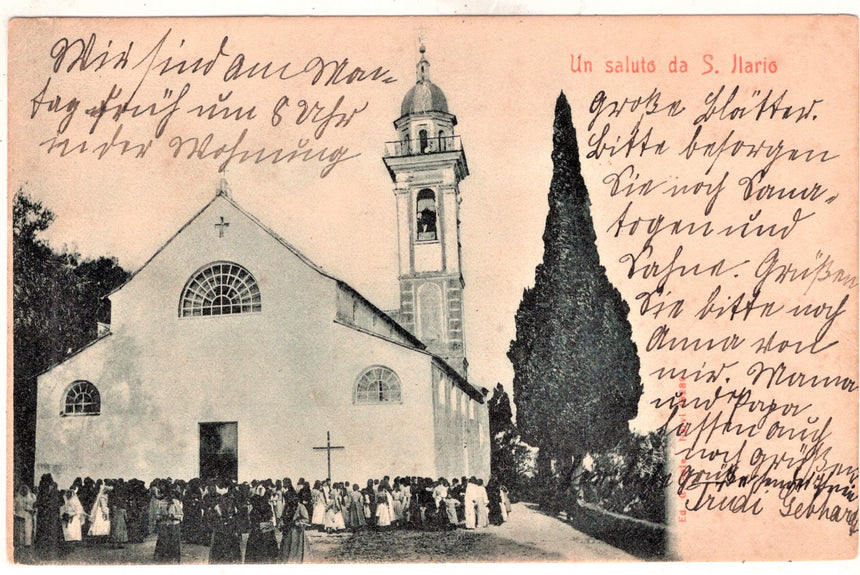 Wir sind am Mon-
tag früh um 8 Uhr
in der Wohnung
Un saluto da S. Ilario
Große Blätter.
Bitte besorgen
Sie noch Sana-
togen und
Sahne. Grüßen
Sie bitte noch
Anna von
mir. Mama
und Papa
lassen auch
noch grüßen
Grüße
Gebhard